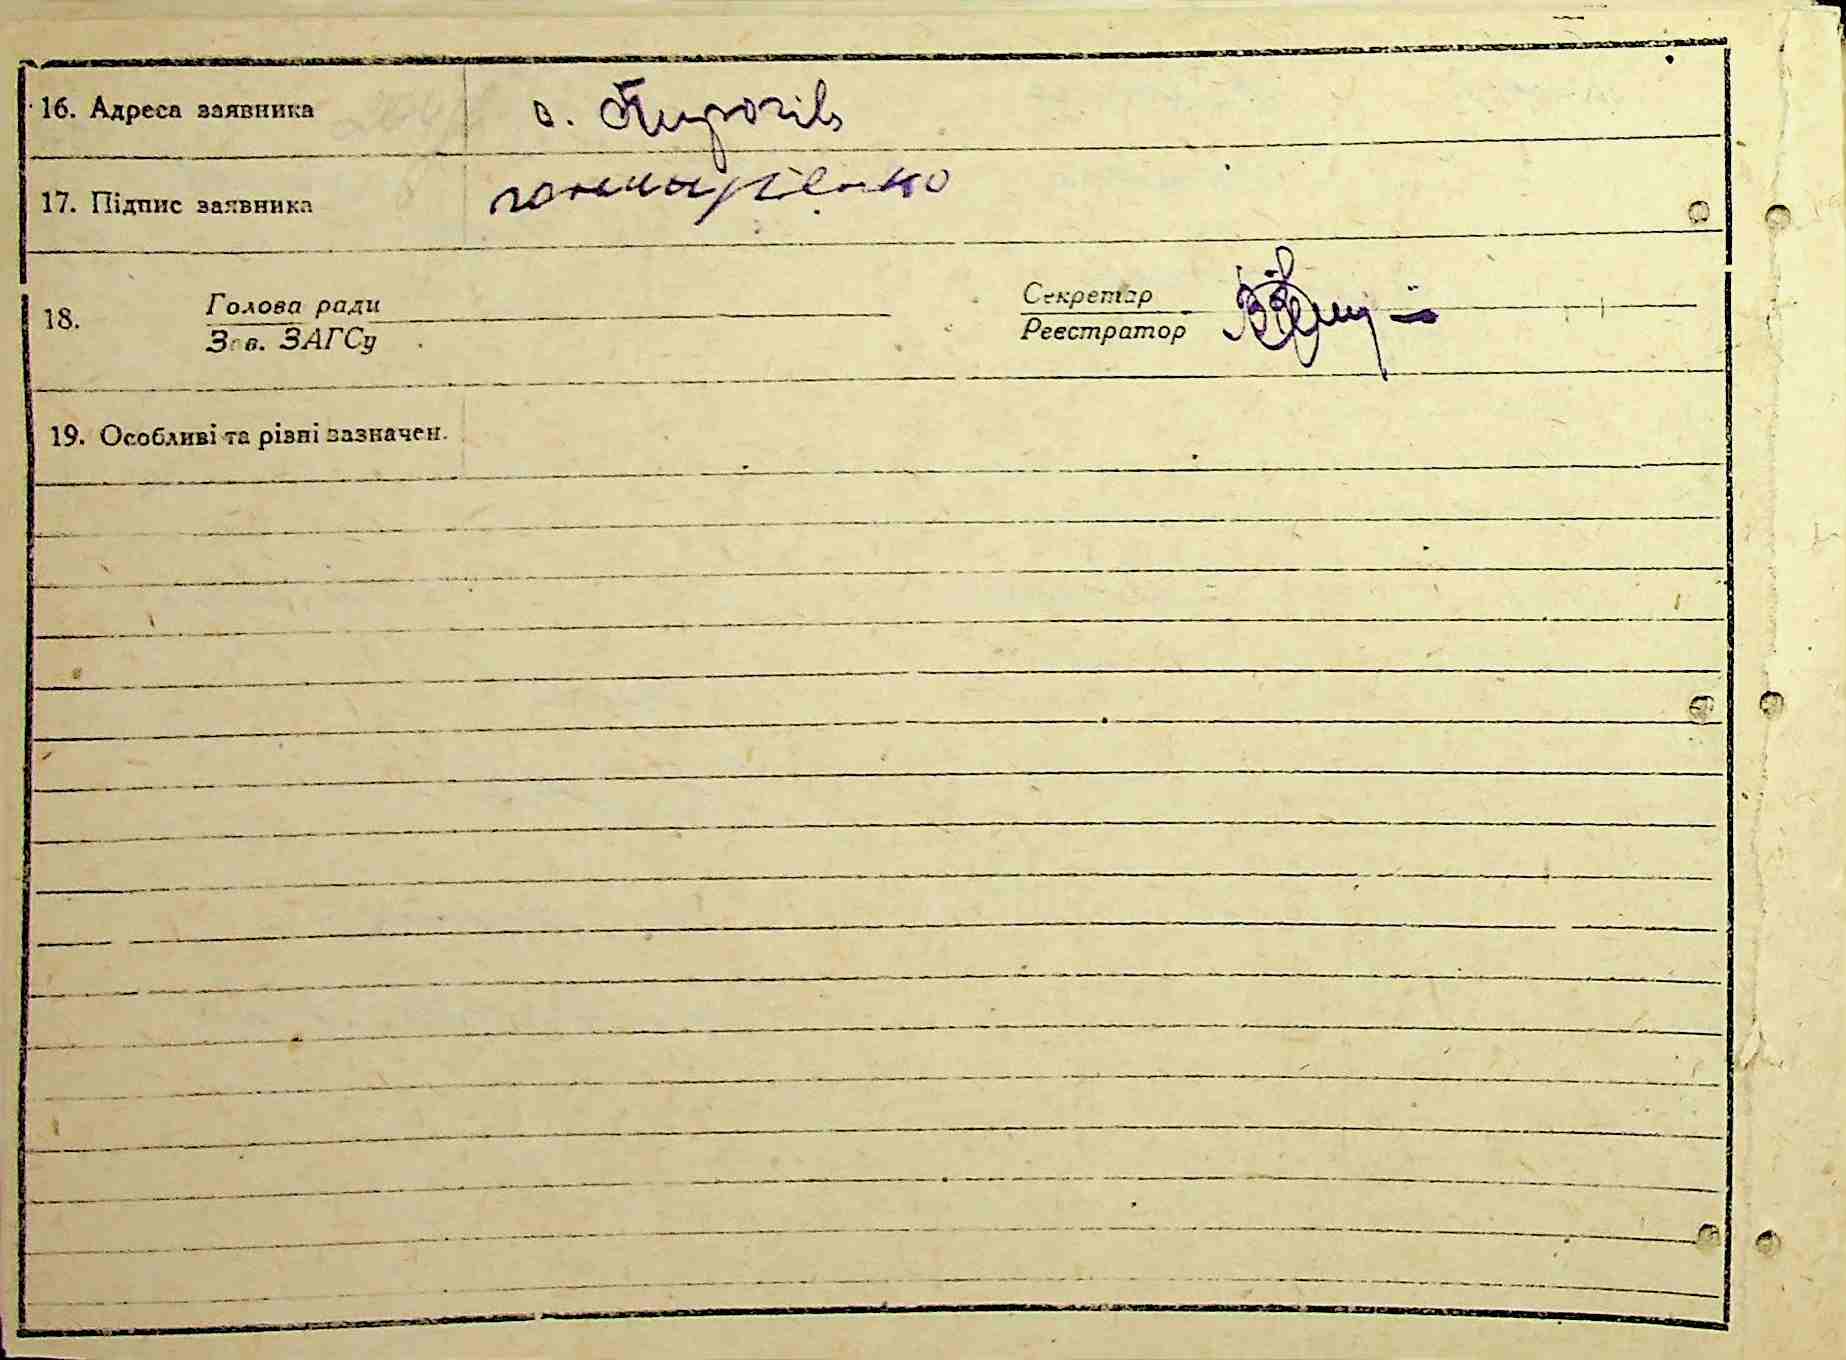 16. Адреса заявника с. Пирогів
17. Підпис заявника гончаренко
18. Голова ради Секретар
Зав. ЗАГСу Реєстратор
19. Особливі та різні зазначен.